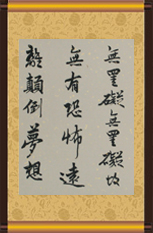 無罣礙無罣礙故
無有恐怖遠
離顛倒夢想